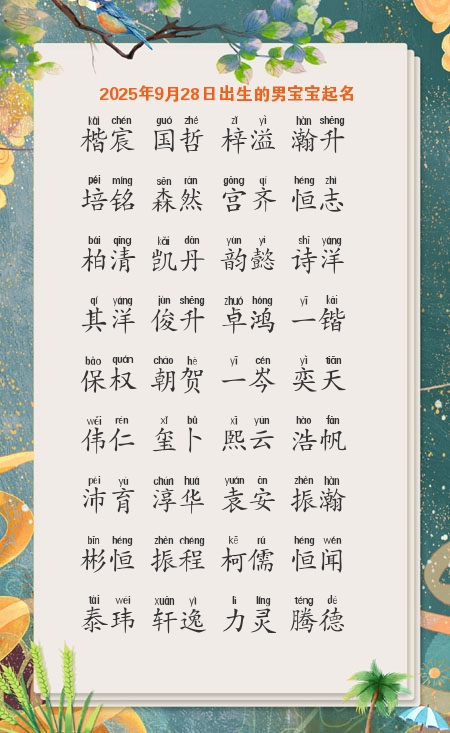 2025年9月28日出生的男宝宝起名
kǎi chén guó zhé zǐ yì hàn shēng
楷宸 国哲 梓溢 瀚升
péi míng sēn rán gōng qí héng zhì
培铭 森然 宫齐 恒志
bǎi qīng kǎi dān yùn yì shī yáng
柏清 凯丹 韵懿 诗洋
qí yáng jùn shēng zhuó hóng yī kǎi
其洋 俊升 卓鸿 一锴
bǎo quán cháo hè yī cén yì tiān
保权 朝贺 一岑 奕天
wěi rén xǐ bǔ xī yún hào fān
伟仁 玺卜 熙云 浩帆
pèi yù chún huá yuán ān zhèn hàn
沛育 淳华 袁安 振瀚
bīn héng zhèn chéng kē rú héng wén
彬恒 振程 柯儒 恒闻
tài wěi xuān yì lì líng téng dé
泰玮 轩逸 力灵 腾德